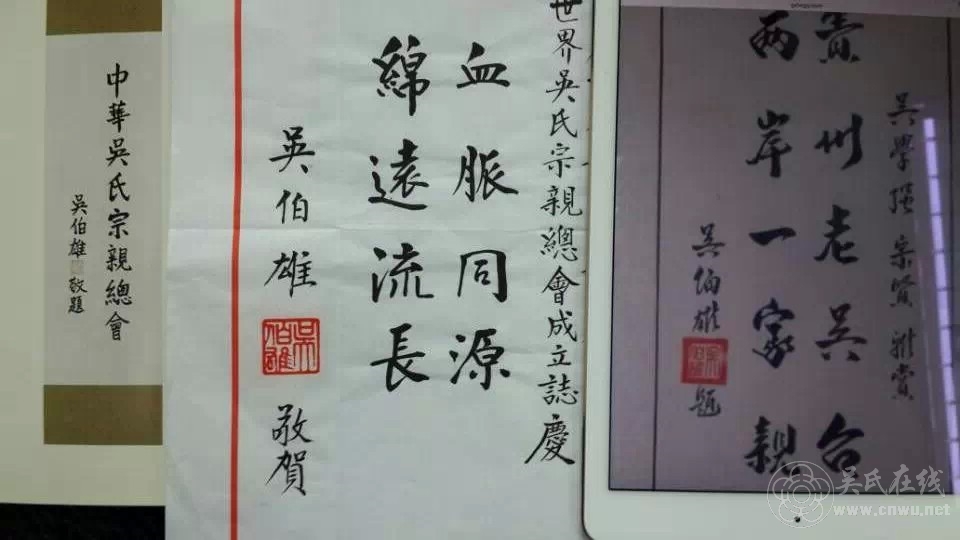 中華吳氏宗親總會
吳伯雄
敬題
世界吳氏宗親總會成立誌慶
血脈同源
綿遠流長
吳伯雄
吳伯雄
敬賀
吴學强 宗賢 雅賞
贵州老吴台
两岸一家親
吴伯雄
題
吴氏在线
www.cnwu.net